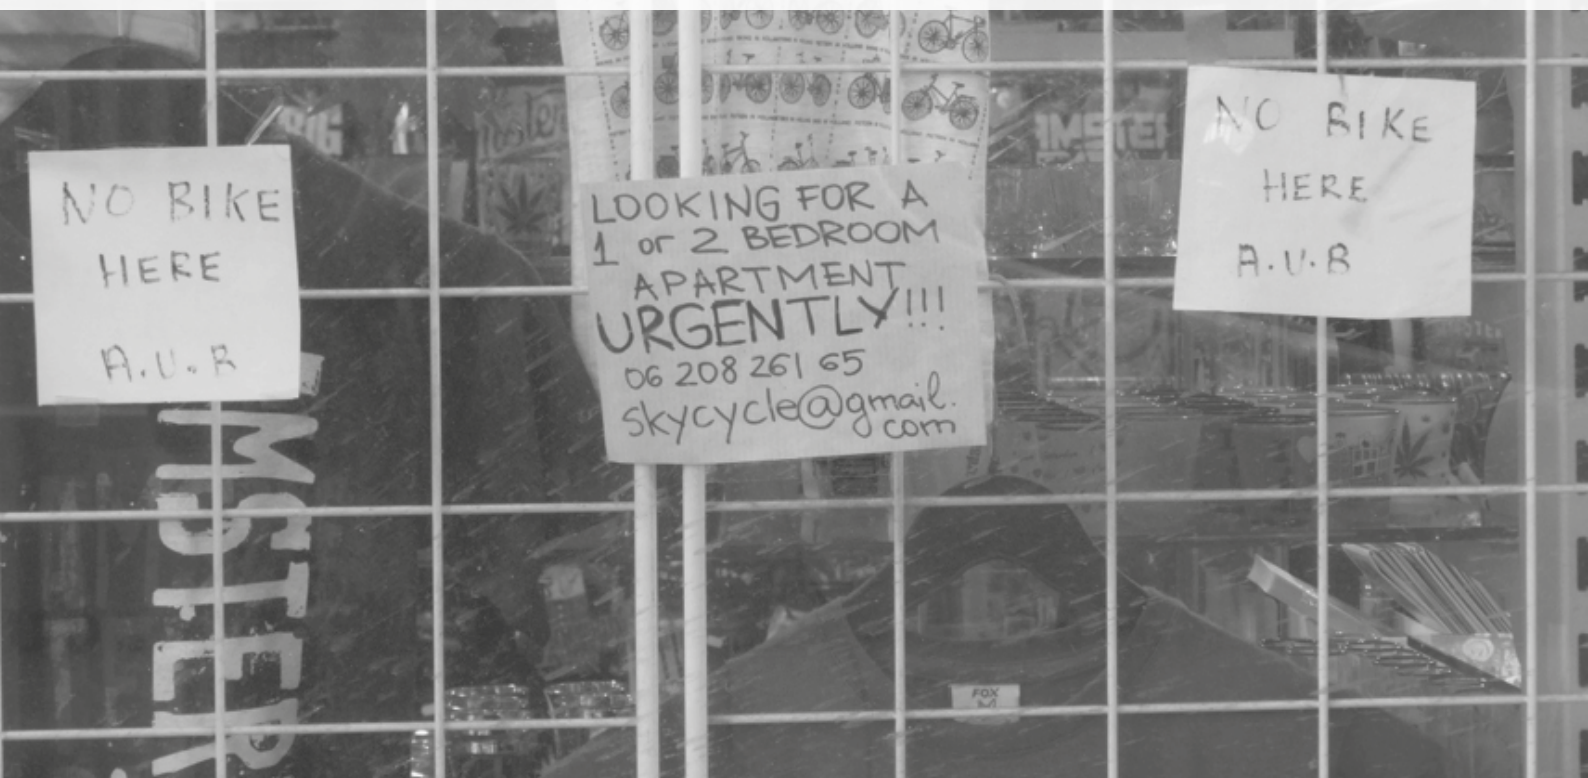 NO BIKE
HERE
A.U.B
LOOKING FOR A
1 or 2 BEDROOM
APARTMENT
URGENTLY!!!
06 208 261 65
skycycle@gmail.
com
NO BIKE
HERE
A.U.B
MSTER
BIG
AMSTER
FOX
M